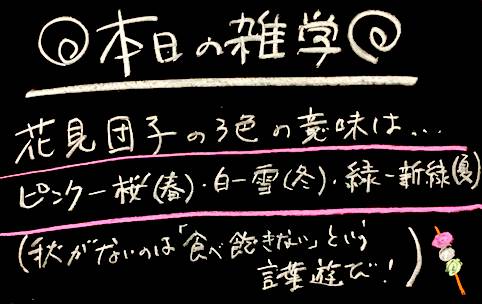 本日の雑学
花見団子の3色の意味は...
ピンクー桜(春)・白ー雪(冬)・緑ー新緑(夏)
(秋がないのは「食べ飽きない」という
言葉遊び!)